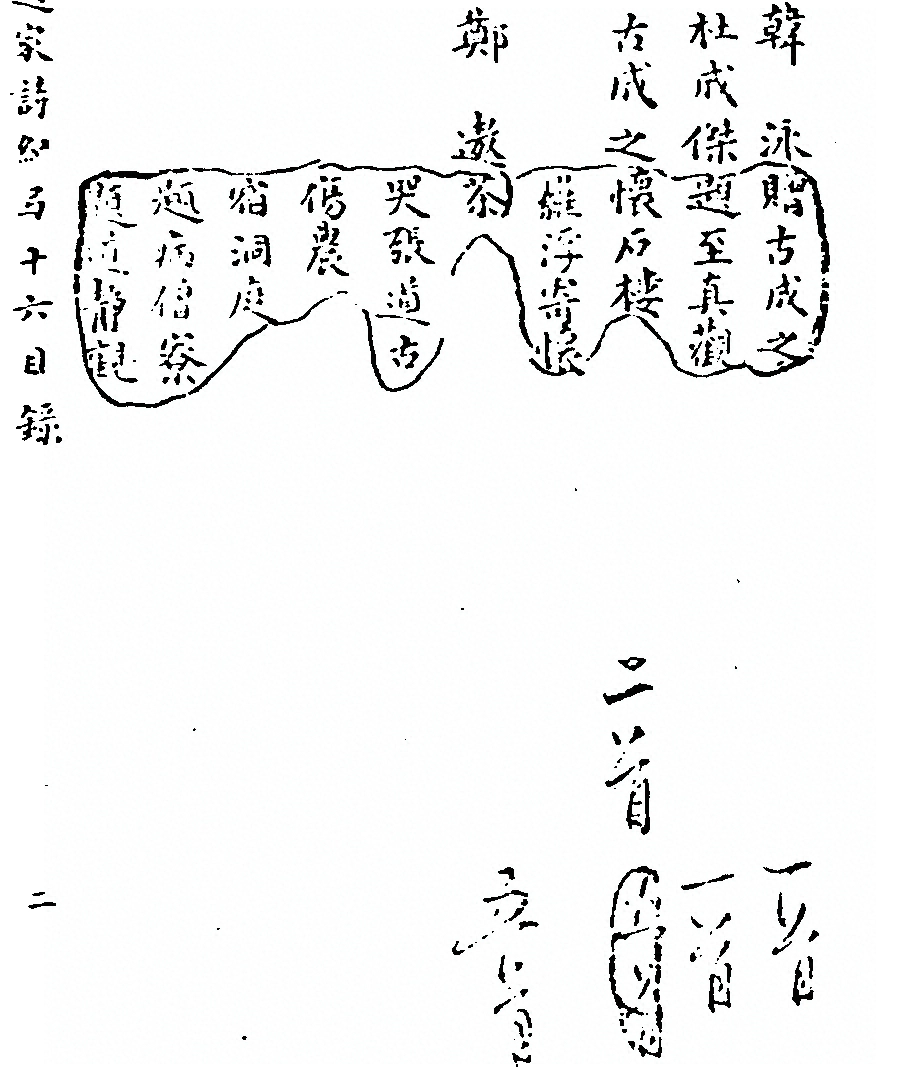 韓　泳贈古成之　一首
杜成傑題至真觀　一首
古成之懷石樓　二首
羅浮寄懷
鄭　遨茶　首
哭張道古
傷農
宿洞庭
題病僧寮
題道靜觀
家詩紀弓十六目錄　二